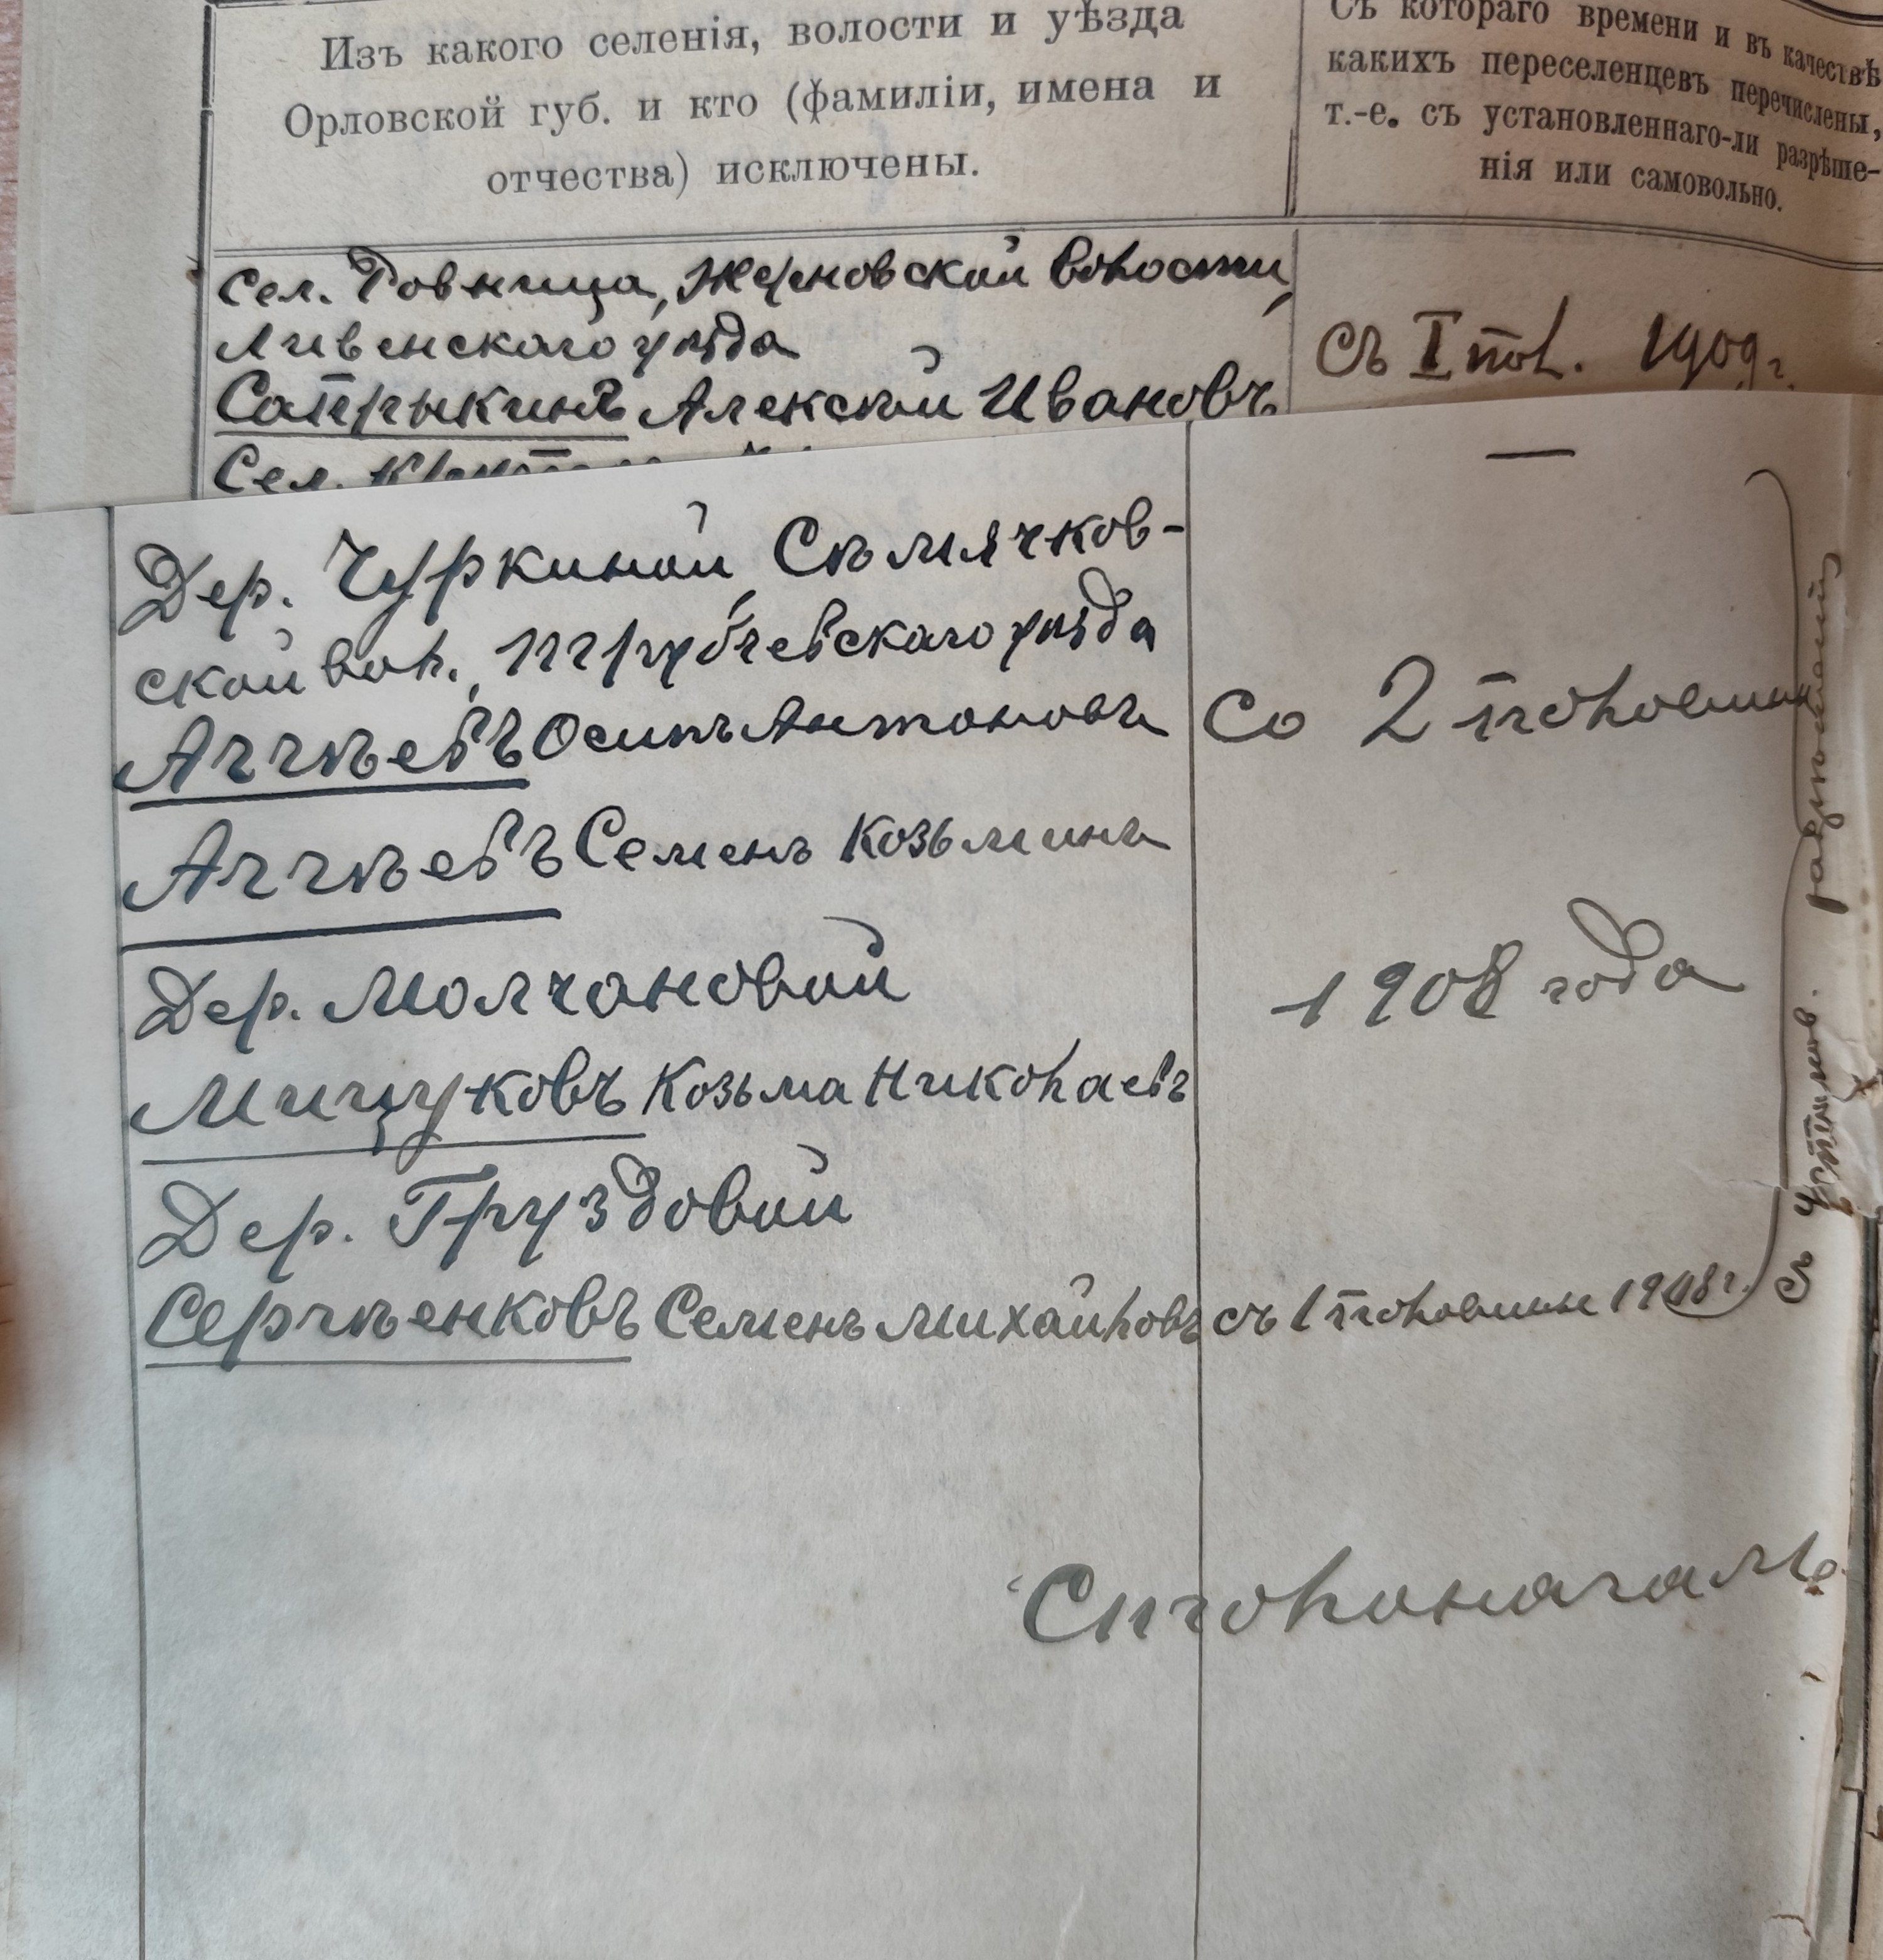 Изъ какого селенія, волости и уѣзда
Орловской губ. и кто (фамиліи, имена и
отчества) исключены.
Съ котораго времени и въ качествѣ
какихъ переселенцевъ перечислены,
т.-е. съ установленнаго-ли разрѣше-
нія или самовольно.
Сел. Ровница, Жерновской волости,
Ливенскаго уѣзда
Сапрыкинъ Алексѣй Ивановъ
съ I пол. 1909 г.
Сел.
Дер. Чуркиной, Сѣмячков-
ской вол., Трубчевскаго уѣзда
Агѣевъ Осипъ Антоновъ
Со 2 половины
Агѣевъ Семенъ Козьминъ
Дер. Молчановой
1908 года
Мищуковъ Козьма Николаевъ
Дер. Груздовой
Сергѣенковъ Семенъ Михайловъ
съ 1 половины 1908 г.
съ установ. разрѣшенія